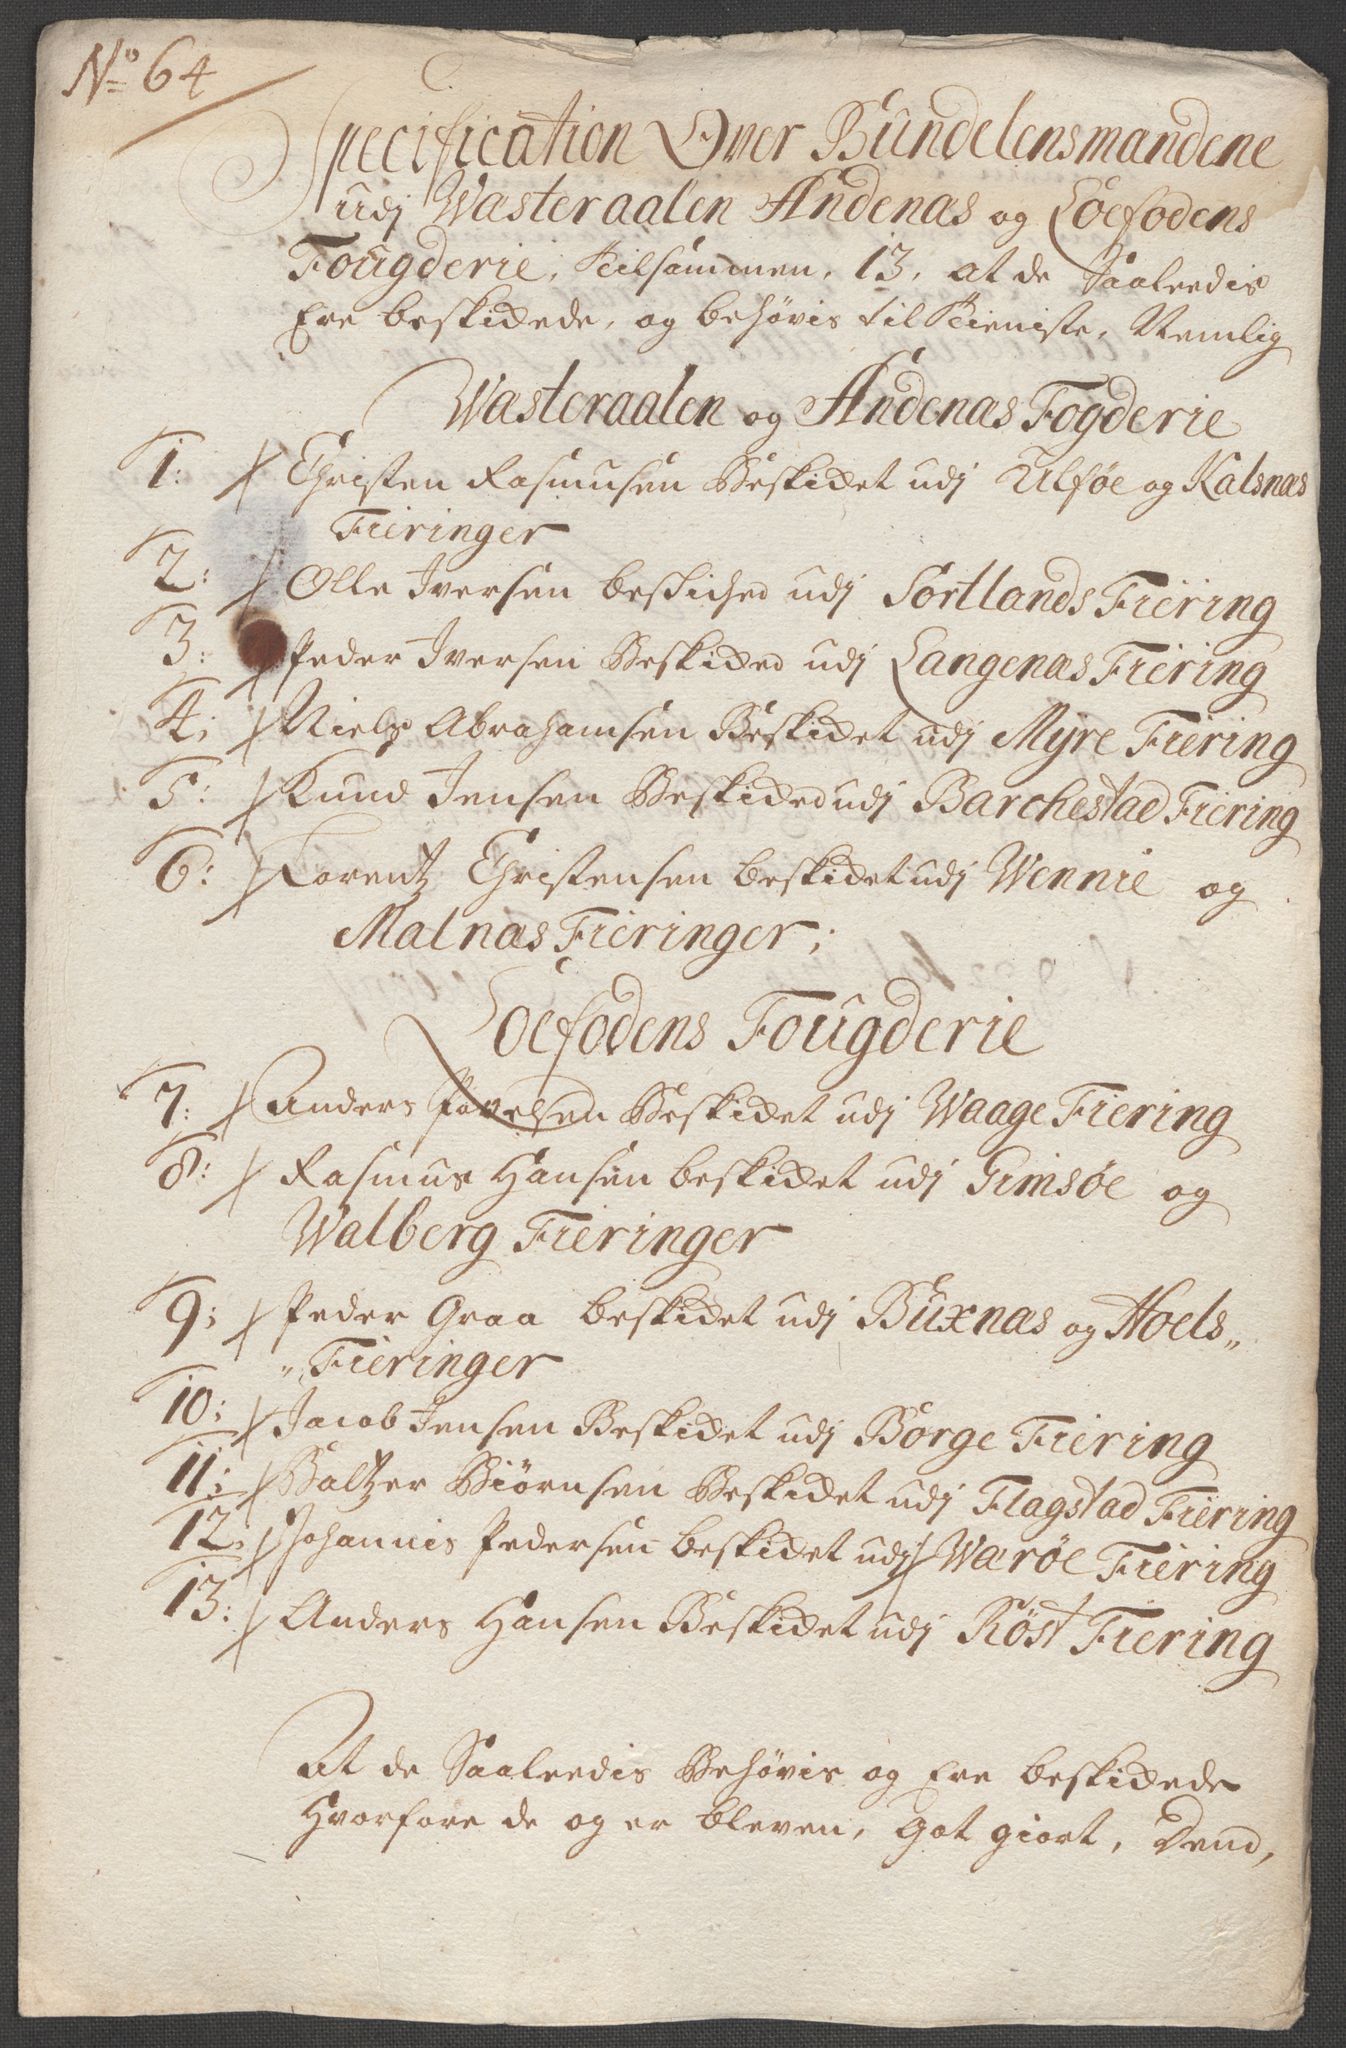 No 64
Specification Over Bundelensmandene
udj Wasteraalen Andenæs og Loefodens
Fougderie, Tilsammen, 13, at de Saaleedis
Ere beskidede, og behøvis til Tieniste, Nemlig
Wasteraalen og Andenæs Fogderie
1: Christen Rasmusen Beskidet udj Ulføe og Kalsnæs
Fieringer
2: Olle Iversen beskidhed udj Sortlands Fiering
3: Peder Iversen Beskided udj Langenæs Fiering
4: Niels Abrahamsen Beskidet udj Myre Fiering
5: Knud Jensen Beskided udj Barchestad Fiering
6: Lorentz Christensen beskidet udj Wennie og
Malnæs Fieringer;
Loefodens Fougderie
7: Anders Povelsen Beskidet udj Waage Fiering
8: Rasmus Hansen beskidet udj Gimsøe og
Walberg Fieringer
9; Peder Graa beskidet udj Buxnæs og Hoels„
„Fieringer
10; Jacob Jensen Beskidet udj Borge Fiering
11; Baltzer Biørnsen Beskidet udj Flagstad Fiering
12; Johannis Pedersen beskidet udj Warøe Fiering
13: Anders Hansen Beskidet udj Røst Fiering
At de Saaleedis Behøvis og Ere beskidede
Hvorfore de og er bleven, got giort, Dend,